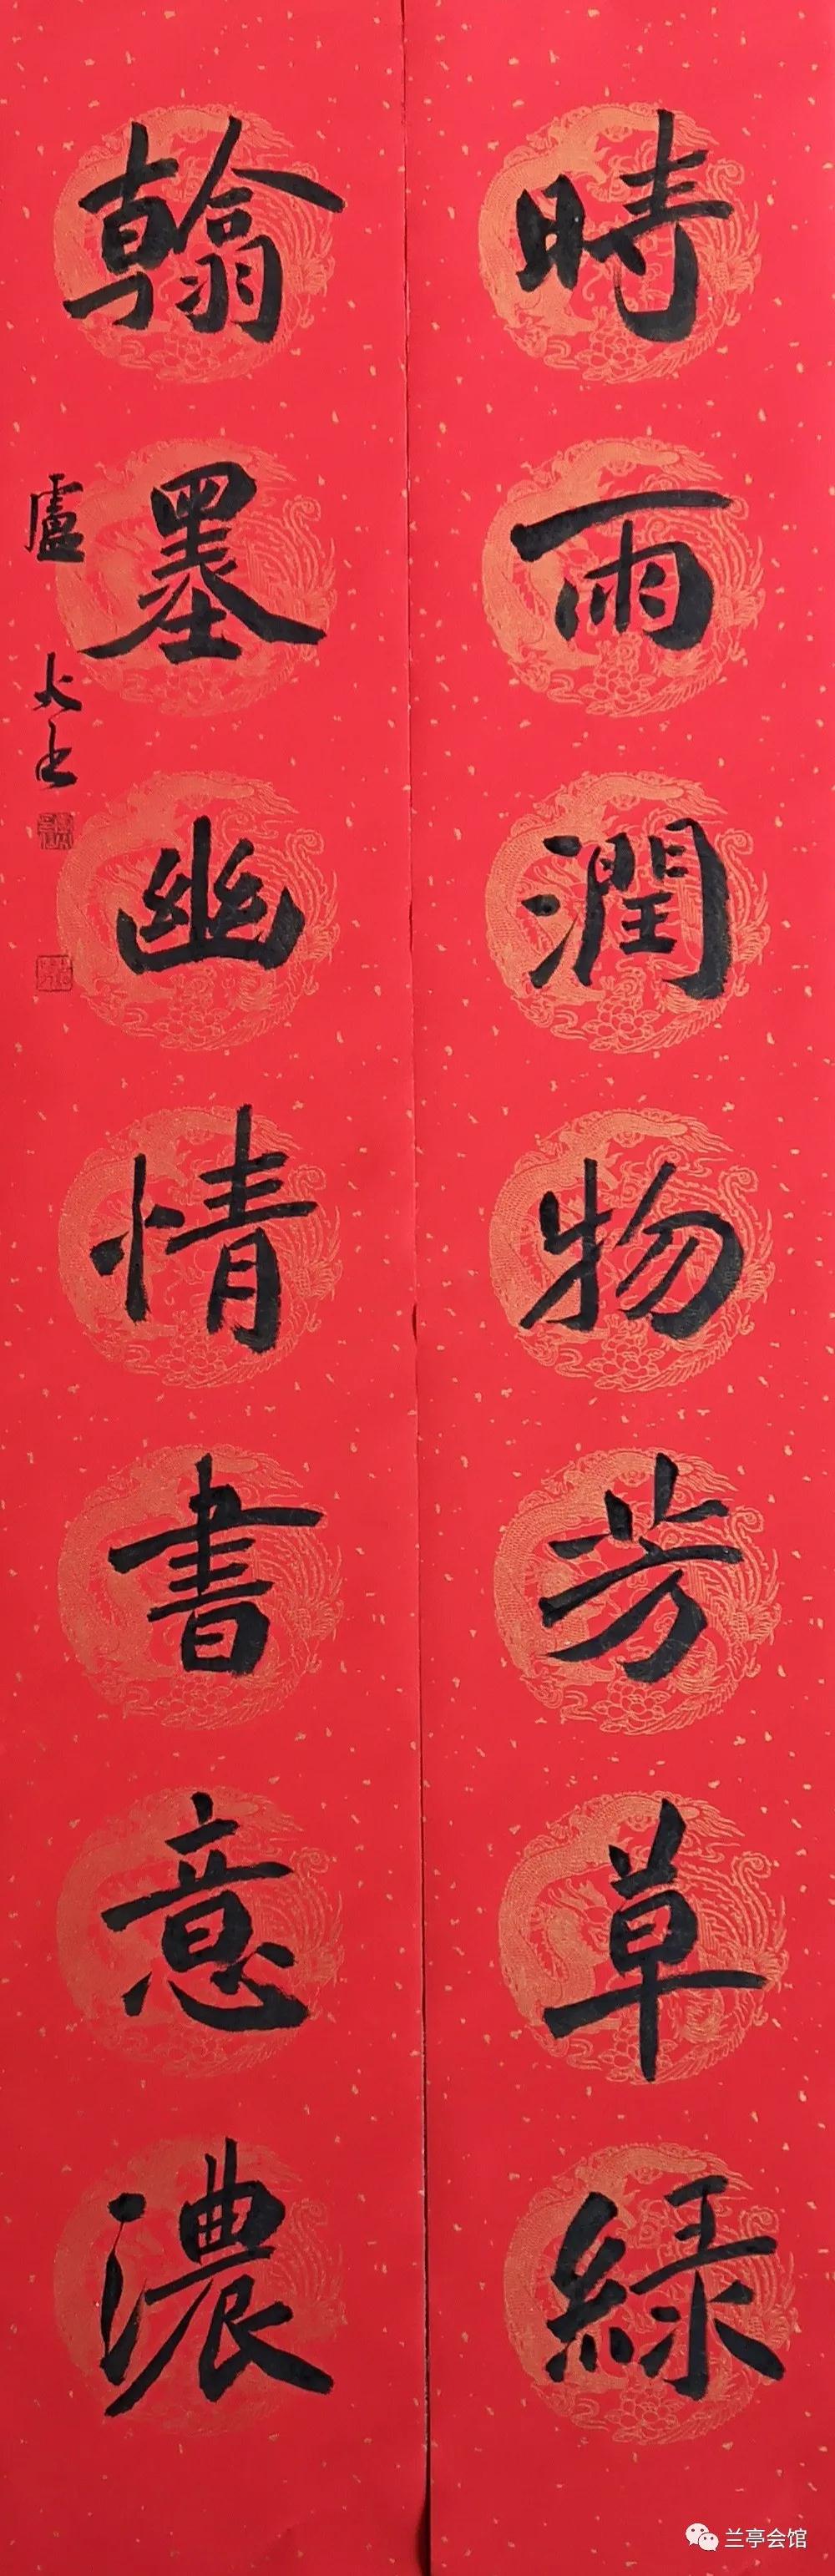 時雨潤物芳草綠
翰墨幽情書意濃
盧
兰亭会馆